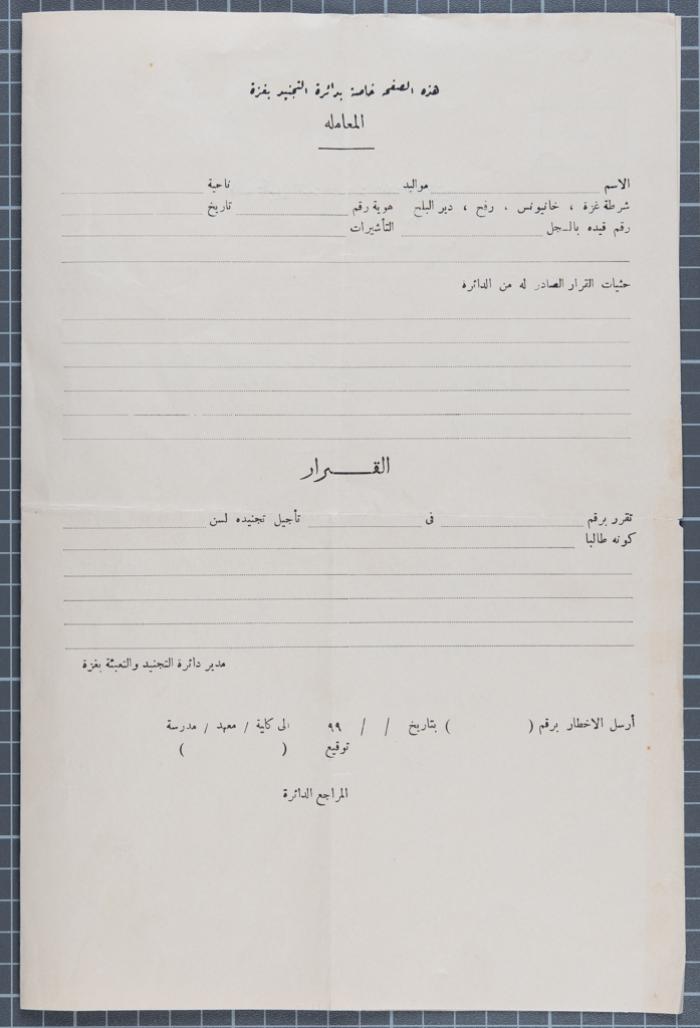 هذه الصفحه خاصة بدائرة التجنيد بغزة
المعامله
الاسم مواليد ناحية
شرطة غزة ، خانيونس ، رفح ، دير البلح هوية رقم تاريخ
رقم قيده بالسجل التأشيرات
حثيات القرار الصادر له من الدائرة
القـــرار
تقرر برقم فى تأجيل تجنيده لسن
كونه طالبا
مدير دائرة التجنيد والتعبئة بغزة
أرسل الاخطار برقم ( ) بتاريخ / / ٩٩ الى كلية / معهد / مدرسة
توقيع ( )
المراجع الدائرة